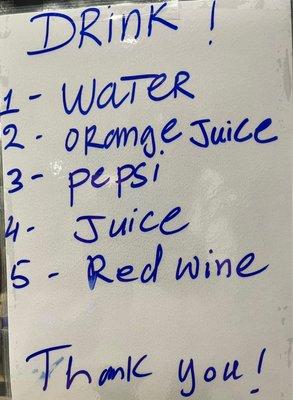 DRINK !
1 - WATER
2 - ORange Juice
3 - pepsi
4 - Juice
5 - Red wine
Thank you!